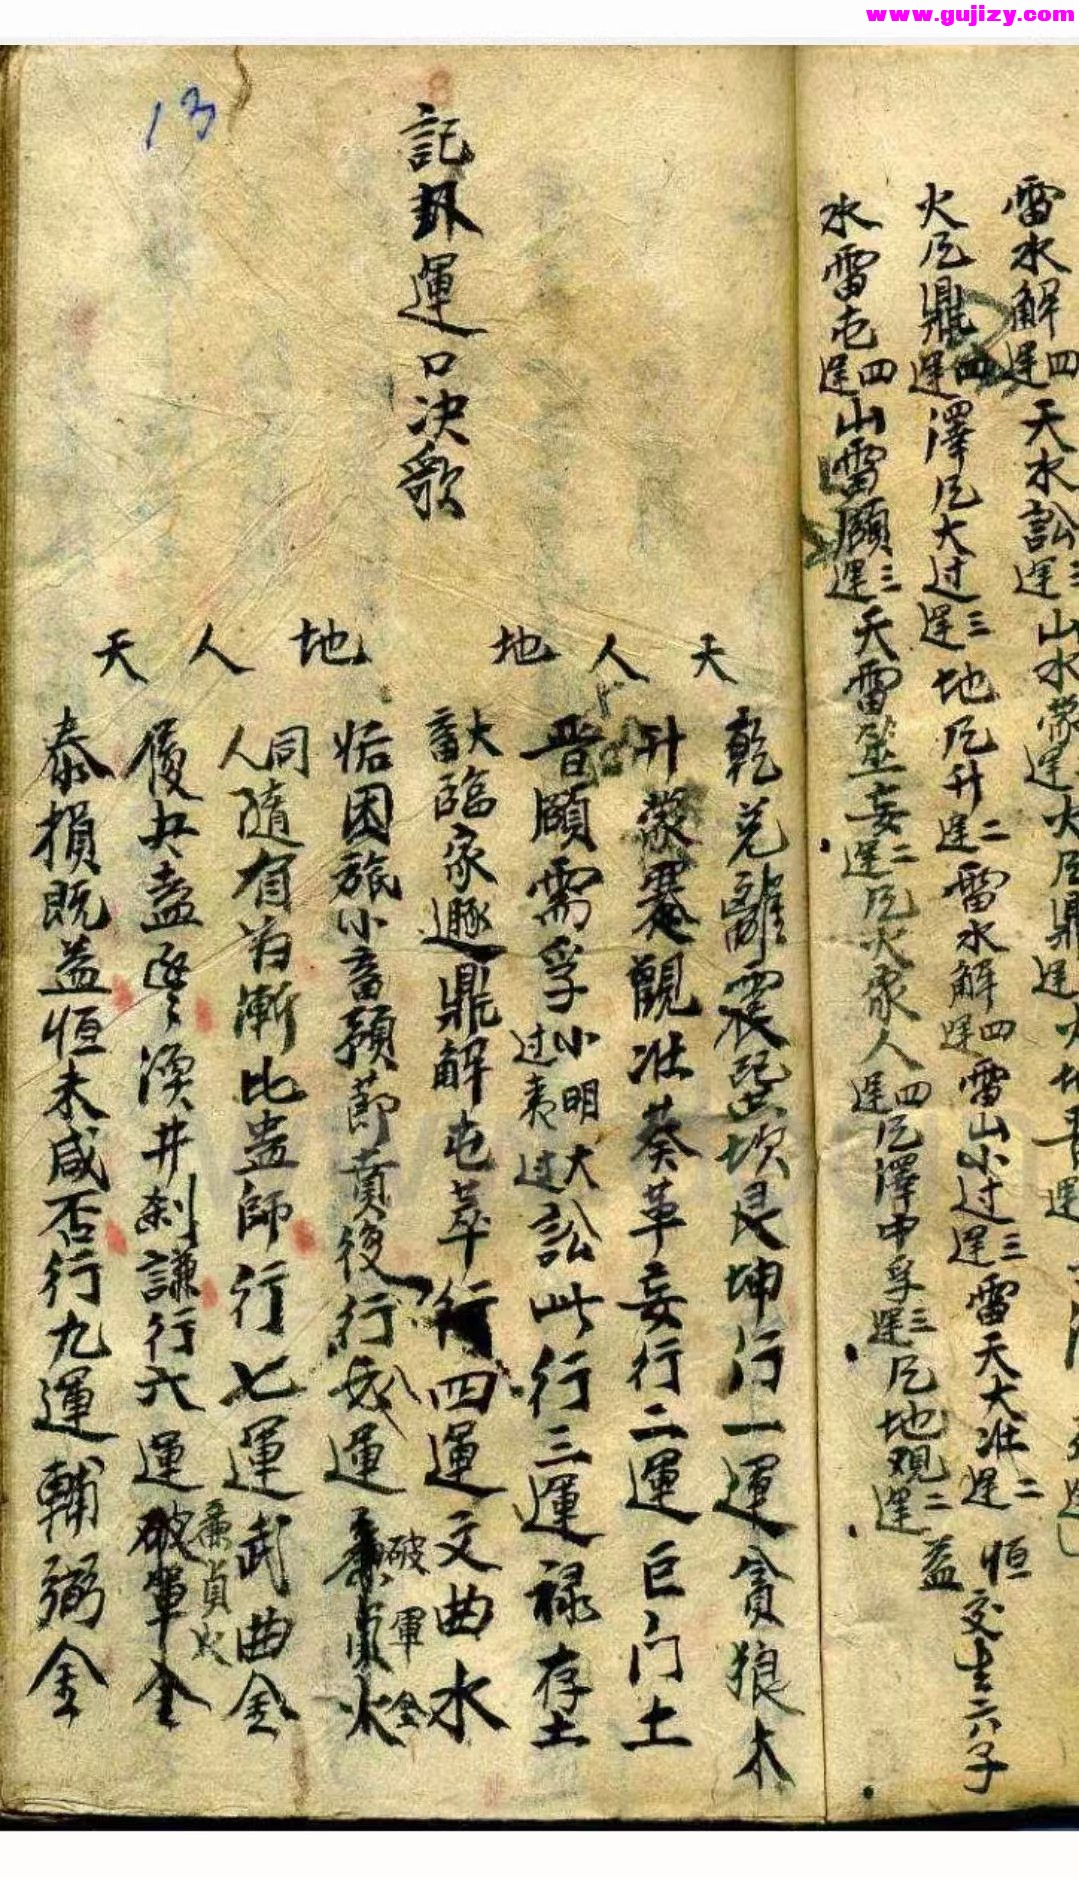 www.gujizy.com
雷水解四運天水訟三運山水蒙運火風鼎運火地晋運
火風鼎四運澤風大过三運地风升二運雷水解四運雷山小过三運雷天大壮二運恒交生六子
水雷屯四運山雷頥三運天雷無妄二運风火家人四運风澤中孚三運风地观二運益
13
記卦運口决歌
天 人 地 地 人 天
乾兑離震巽坎艮坤行一運貪狼木
升蒙蹇觀壮葵革妄行二運巨门土
晋頥需孚小过明夷大过訟此行三運禄存土
大畜臨家遯鼎解屯萃行四運文曲水
姤困旅小畜豫節賁復行八運破軍金
同人隨有归漸比蛊師行七運武曲金
履夬盍丰渙井剝謙行六運廉貞火
泰損既益恒未咸否行九運輔弼金